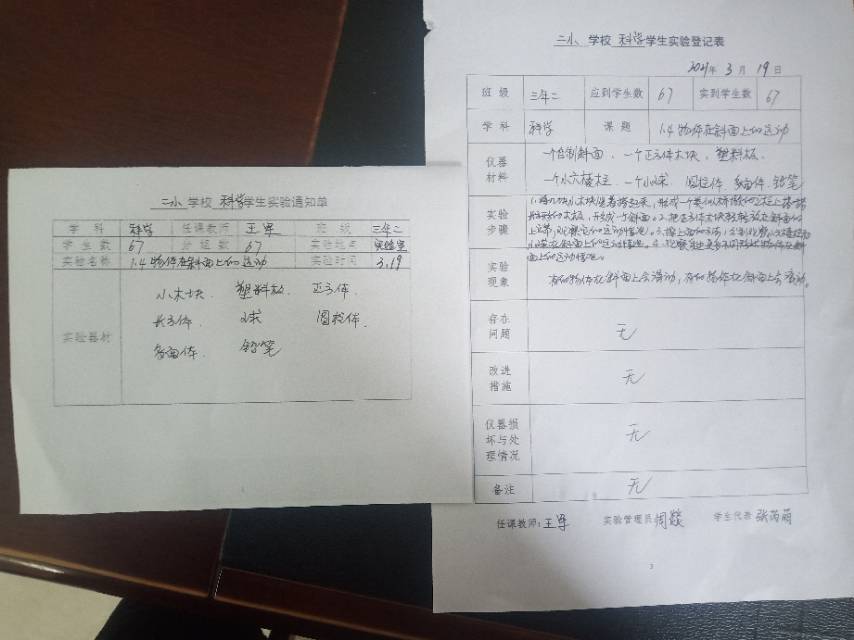 二小 学校 科学学生实验通知单
学科 科学 任课教师 王军 班级 三年二
学生数 67 分组数 67 实验地点 实验室
实验名称 1.4 物体在斜面上的运动 实验时间 3.19
实验器材
小木块 塑料板 正方体
长方体 小球 圆柱体
多面体 铅笔
二小 学校 科学学生实验登记表
2021年 3月 19日
班级 三年二 应到学生数 67 实到学生数 67
学科 科学 课题 1.4 物体在斜面上的运动
仪器材料
一个自制斜面、一个正方体木块、塑料板、
一个小六棱柱、一个小球 圆柱体 多面体 铅笔
实验步骤
2. 把正方体木块轻轻放在斜面的
上端,观察它的运动情况。
小球在斜面上的运动情况。4. 观察
面上的运动情况。
实验现象
有的物体在斜面上会滑动,有的物体在斜面上会滚动。
存在问题 无
改进措施 无
仪器损坏与处理情况 无
备注 无
任课教师:王军 实验管理员 周 学生代表 张芮萌